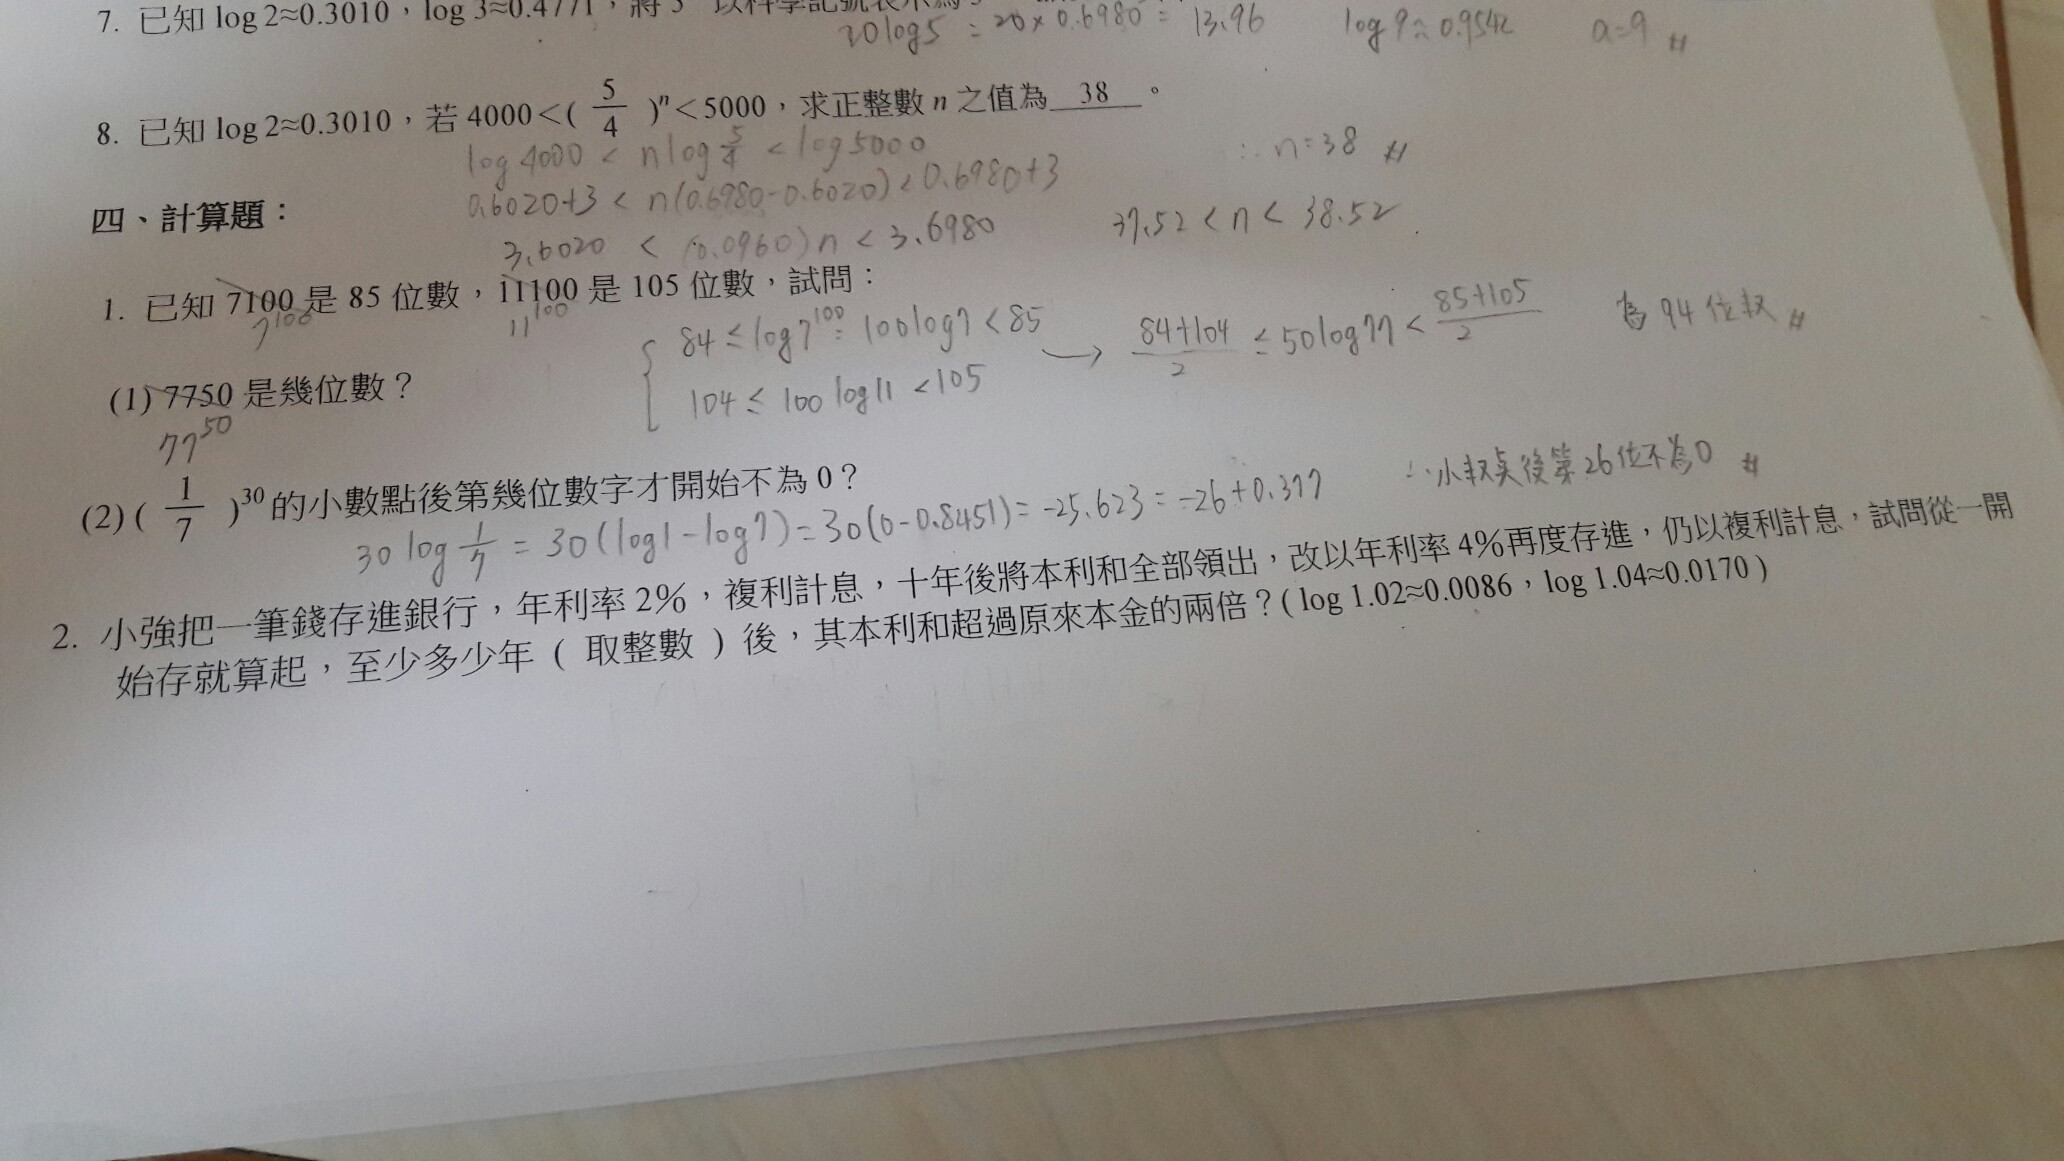 7. 已知 log 2≈0.3010，log 3≈0.4771，將 5 以科學記號表示為
20log5 = 20×0.6980 = 13.96 log 9≈0.9542 a=9 #
8. 已知 log 2≈0.3010，若 4000<( 5/4 )ⁿ<5000，求正整數 n 之值為 38 。
log 4000 < n log 5/4 < log 5000 ∴ n=38 #
0.6020+3 < n(0.6980-0.6020) < 0.6980+3
四、計算題：
3.6020 < (0.0960)n < 3.6980 37.52 < n < 38.52
1. 已知 7100 是 85 位數，11100 是 105 位數，試問：
7¹⁰⁰ 11¹⁰⁰
84 ≤ log7¹⁰⁰ = 100log7 < 85 → (84+104)/2 ≤ 50log77 < (85+105)/2 為 94 位数 #
104 ≤ 100 log11 < 105
(1) 7750 是幾位數？
77⁵⁰
(2) ( 1/7 )³⁰ 的小數點後第幾位數字才開始不為 0？
30 log 1/7 = 30(log1-log7) = 30(0-0.8451) = -25.623 = -26+0.377 ∴小数點後第26位不為0 #
2. 小強把一筆錢存進銀行，年利率 2%，複利計息，十年後將本利和全部領出，改以年利率 4%再度存進，仍以複利計息，試問從一開
始存就算起，至少多少年 ( 取整數 ) 後，其本利和超過原來本金的兩倍？( log 1.02≈0.0086，log 1.04≈0.0170 )